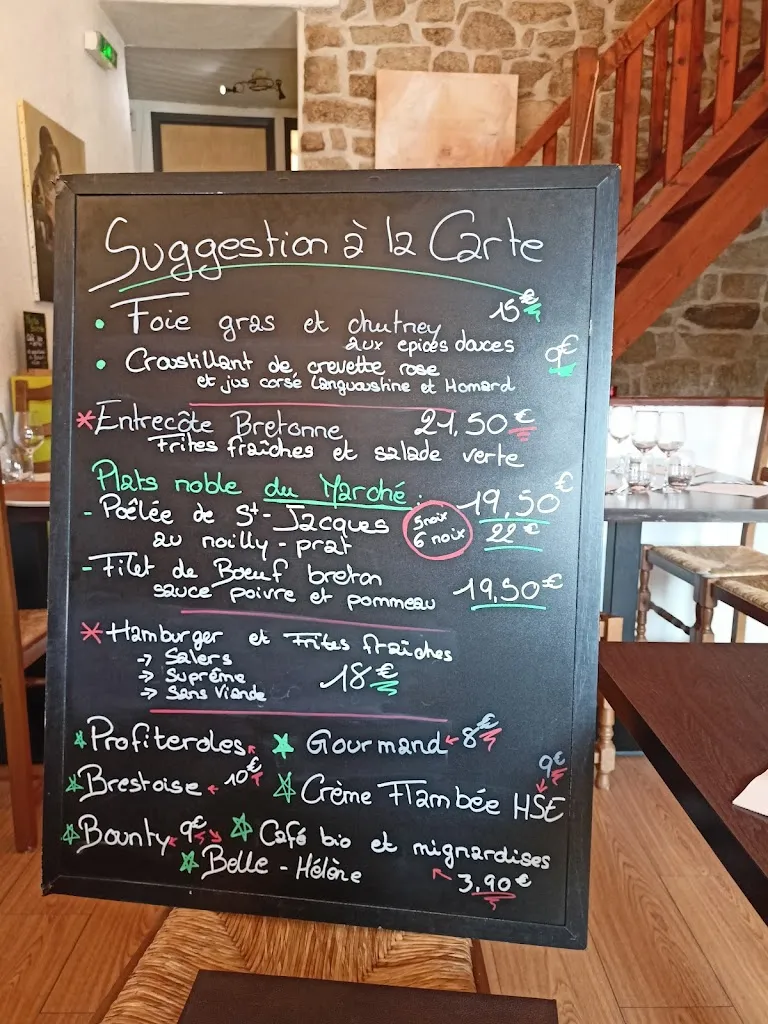 Suggestion à la Carte
• Foie gras et chutney 15€
aux epices douces
• Croustillant de crevette rose 9€
et jus corsé Languoustine et Homard
* Entrecôte Bretonne 21,50€
Frites fraîches et salade verte
Plats noble du Marché :
- Poêlée de St-Jacques 5 noix 19,50€
au noilly-prat 6 noix 22€
- Filet de Boeuf breton
sauce poivre et pommeau 19,50€
* Hamburger et Frites fraîches
→ Salers
→ Suprême 18€
→ Sans Viande
☆ Profiteroles ☆ Gourmand 8€
☆ Brestoise 10€ ☆ Crème Flambée HSE 9€
☆ Bounty 9€ ☆ Café bio et mignardises
☆ Belle-Hélène 3,90€